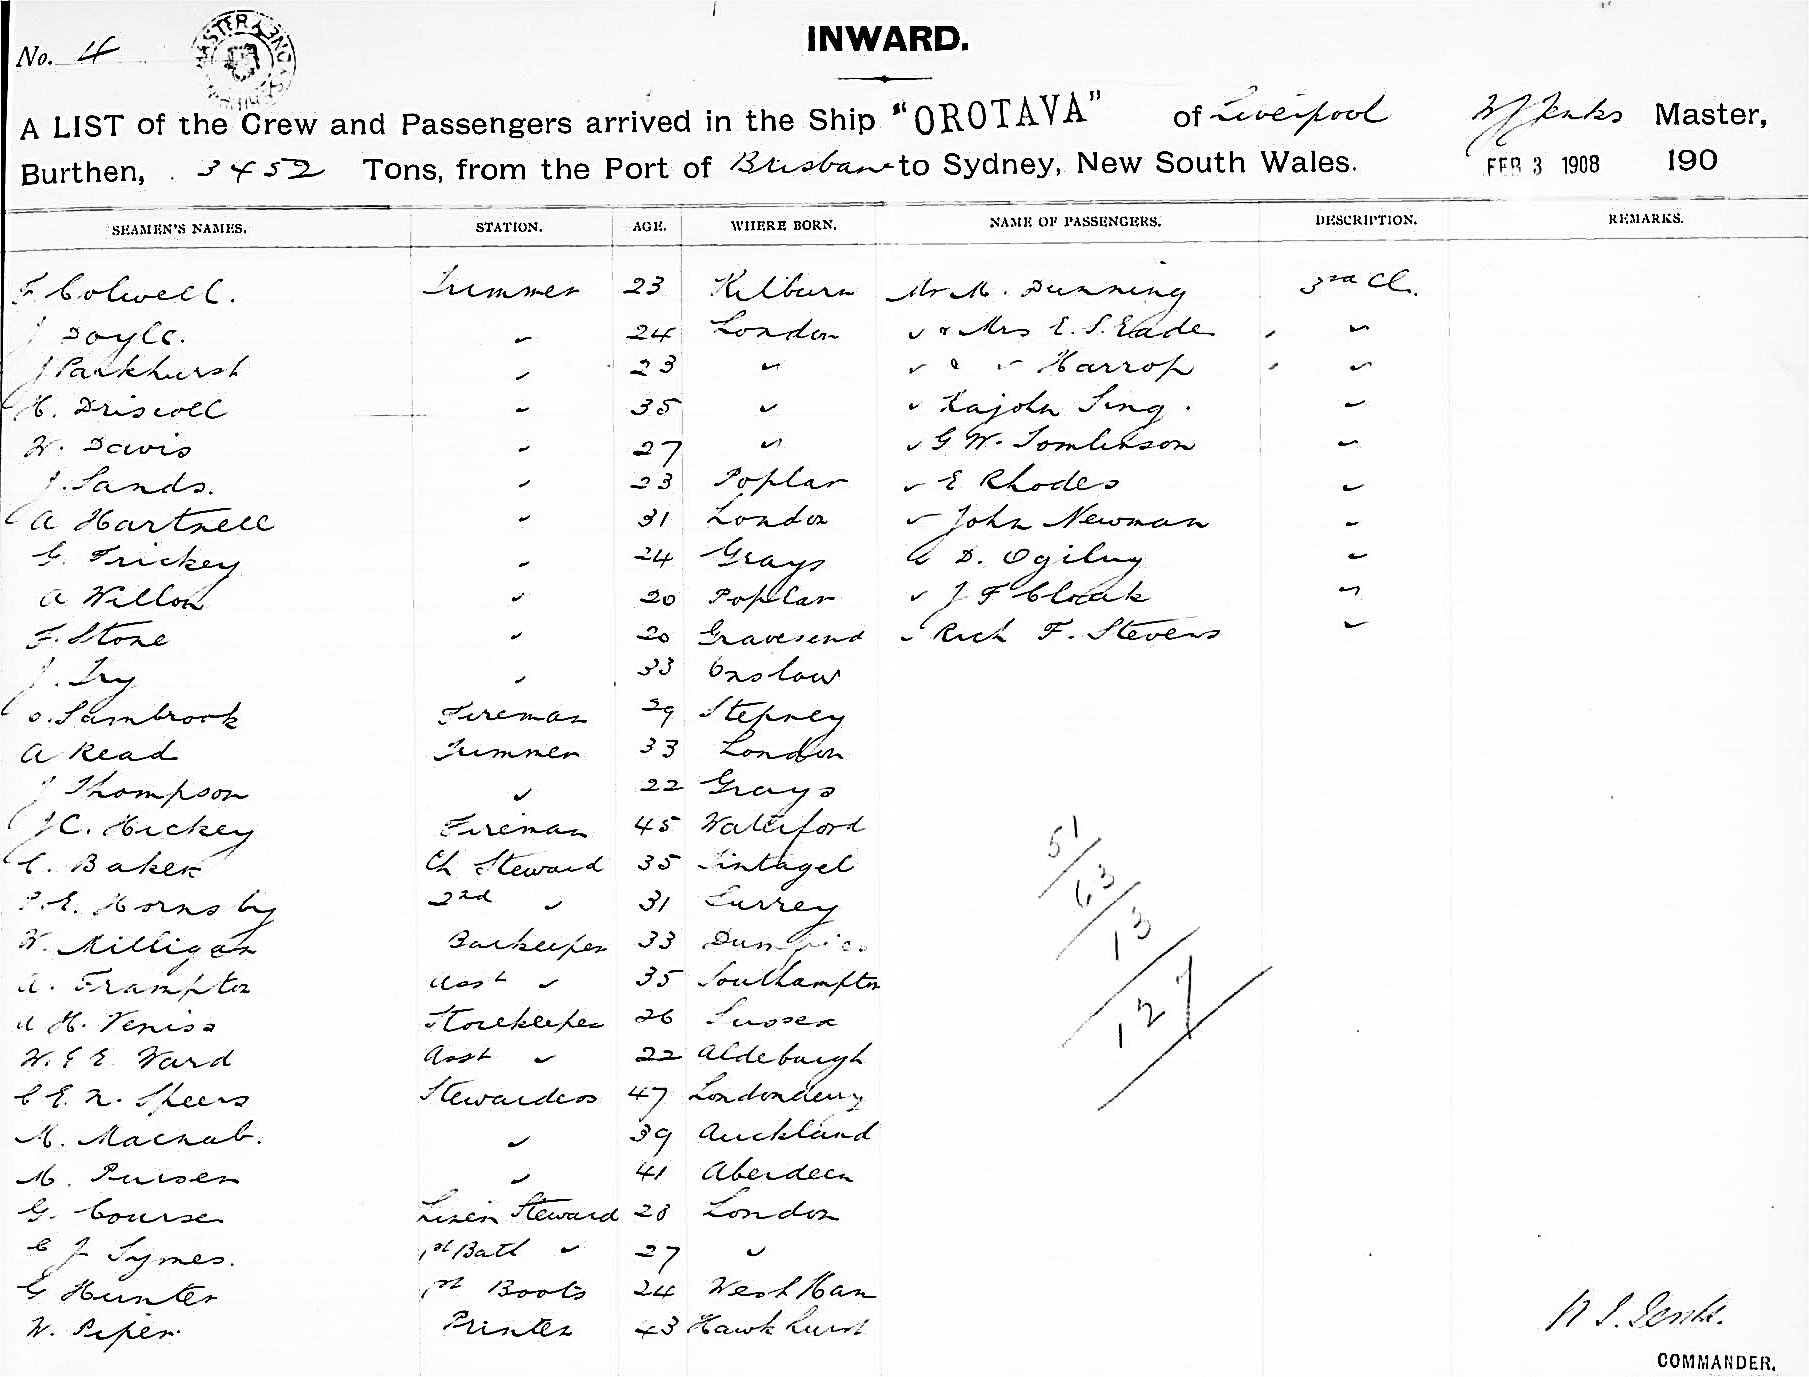 No. 4
INWARD.
A LIST of the Crew and Passengers arrived in the Ship "OROTAVA" of Liverpool W J Jenks Master,
Burthen, 3452 Tons, from the Port of Brisbane to Sydney, New South Wales. FEB 3 1908 190
SEAMEN'S NAMES. STATION. AGE. WHERE BORN. NAME OF PASSENGERS. DESCRIPTION. REMARKS.
F Colwell. Trimmer 23 Kilburn Mr M. Dunning 3rd Cl.
J Doyle. " 24 London " & Mrs E. S. Eade "
J Parkhurst " 23 " " & " Harrop "
H. Driscoll " 35 " " Sing. "
W. Davis " 27 " " G W. Tomlinson "
J. Sands. " 23 Poplar " E Rhodes "
A Hartnell " 31 London " John Newman "
G. Trickey " 24 Grays " D. Ogilvy "
A Willon " 20 Poplar " J F Cloak "
F. Stone " 20 Gravesend " Rich F. Stevens "
J. Try " 33 Onslow
S. Sambrook Fireman 29 Stepney
A Read Trimmer 33 London
J Thompson " 22 Grays
J C. Hickey Fireman 45 Waterford
C. Baker Ch Steward 35 Tintagel
P. E. Hornsby 2nd " 31 Surrey
W. Milligan Barkeeper 33
A. Frampton Asst " 35 Southampton
A H. Veniss Storekeeper 26 Sussex
W. G E. Ward Asst " 22 Aldeburgh
C E. N. Speers Stewardess 47 Londonderry
M. Macnab. " 39 Auckland
M. Purser " 41 Aberdeen
G. Course Linen Steward 28 London
C J Symes. 1st Bath " 27 "
G Hunter 1st Boots 24 West Ham
W. Piper Printer 43 Hawkhurst
51
63
13
127
W J. Jenks.
COMMANDER.